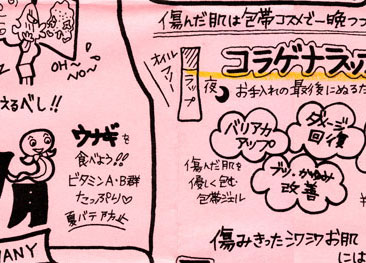 OH~
NO~
えるべし!!
ウナギを
食べよう!!
ビタミンA・B群
たっぷり♡
夏バテ防止
MANY
傷んだ肌は包帯コスメで一晩
オイル
フリー
ラップ
コラゲナラップ
夜
お手入れの最後にぬるだ
バリア力
アップ
ダメージ
回復
ブツ・かゆみ
改善
傷んだ肌を
優しく包む
包帯ジェル
傷みきったシワシワお肌
には